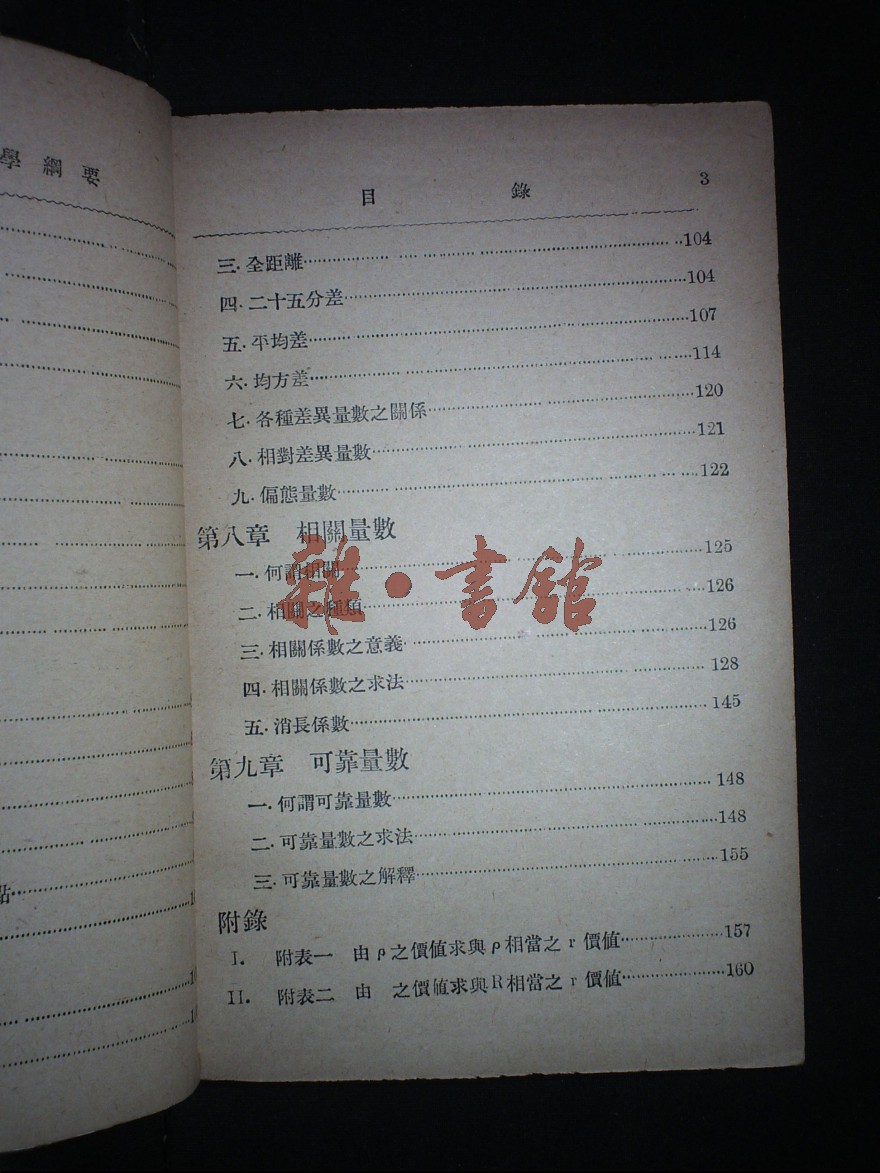 學綱要
點
目錄 3
三.全距離 104
四.二十五分差 104
五.平均差 107
六.均方差 114
七.各種差異量數之關係 120
八.相對差異量數 121
九.偏態量數 122
第八章 相關量數
一.何謂相關 125
二.相關之種類 126
三.相關係數之意義 126
四.相關係數之求法 128
五.消長係數 145
第九章 可靠量數
一.何謂可靠量數 148
二.可靠量數之求法 148
三.可靠量數之解釋 155
附錄
I. 附表一 由ρ之價值求與ρ相當之r價值 157
II. 附表二 由 之價值求與R相當之r價值 160
雜·書館